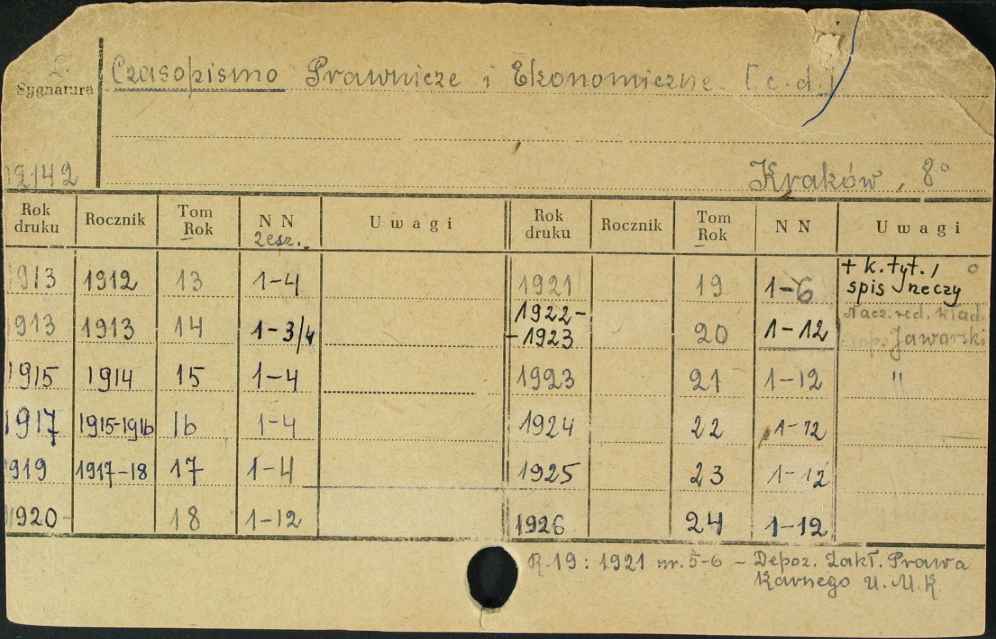 Sygnatura Czasopismo Prawnicze i Ekonomiczne. [c.d.]
12142 Kraków, 8°
Rok druku Rocznik Tom Rok N N zesz. Uwagi Rok druku Rocznik Tom Rok N N Uwagi
1913 1912 13 1-4 1921 19 1-6 + k. tyt. / spis rzeczy
1913 1913 14 1-3/4 1922-1923 20 1-12 Nacz. red. Wład. Jaworski
1915 1914 15 1-4 1923 21 1-12 "
1917 1915-1916 16 1-4 1924 22 1-12
1919 1917-18 17 1-4 1925 23 1-12
1920 18 1-12 1926 24 1-12
R. 19: 1921 nr. 5-6 - Depoz. Zakł. Prawa
Karnego U.M.K.